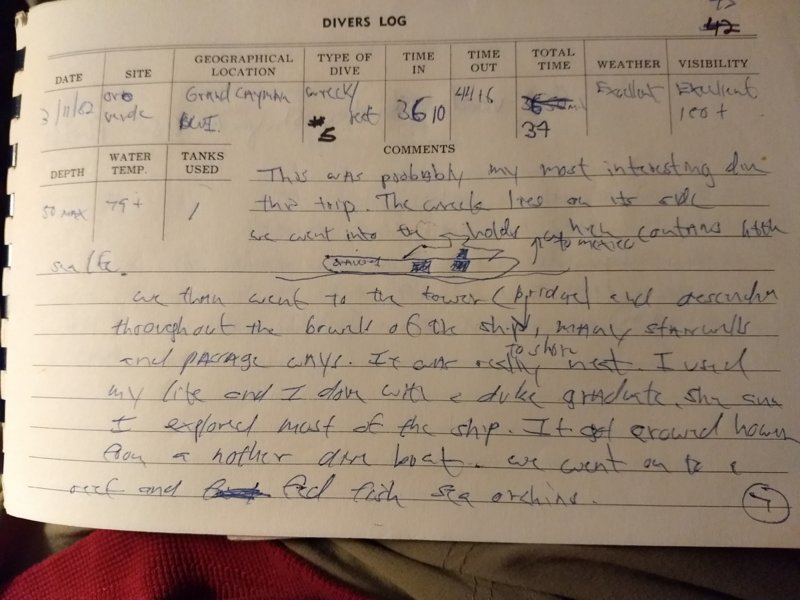 DIVERS LOG
42
DATE SITE GEOGRAPHICAL LOCATION TYPE OF DIVE TIME IN TIME OUT TOTAL TIME WEATHER VISIBILITY
3/11/82 oro verde Grand Cayman BWI. wreck/ reef #5 3610 4416 34 Excellent Excellent 100+
DEPTH WATER TEMP. TANKS USED COMMENTS
50 MAX 79+ 1
This was probably my most interesting dive
this trip. The wreck lies on its side
we went into the holds which contains little
sea life. to mexico
we then went to the tower (bridge) and descended
throughout the bowels of the ship, many stairwells
to shore
and passage ways. It was really neat. I used
my lite and I dove with a duke graduate, she and
I explored most of the ship. It got around
from a nother dive boat. we went on to a
reef and fed fish sea orchins.